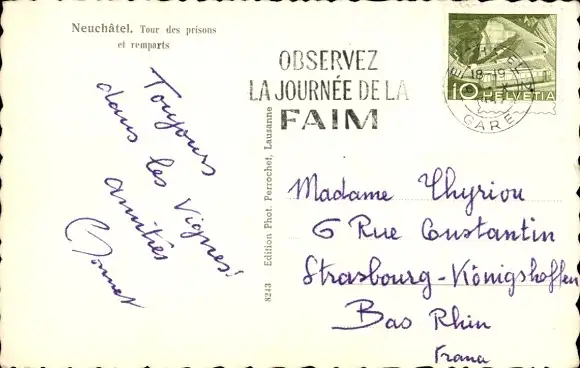 Neuchâtel. Tour des prisons
et remparts
OBSERVEZ
LA JOURNÉE DE LA
FAIM
18-19
GARE
10 HELVETIA
Toujours
dans les vignes!
amitiés
8243 Edition Phot. Perrochet, Lausanne
Madame Thyriou
6 Rue Constantin
Strasbourg-Königshoffen
Bas Rhin